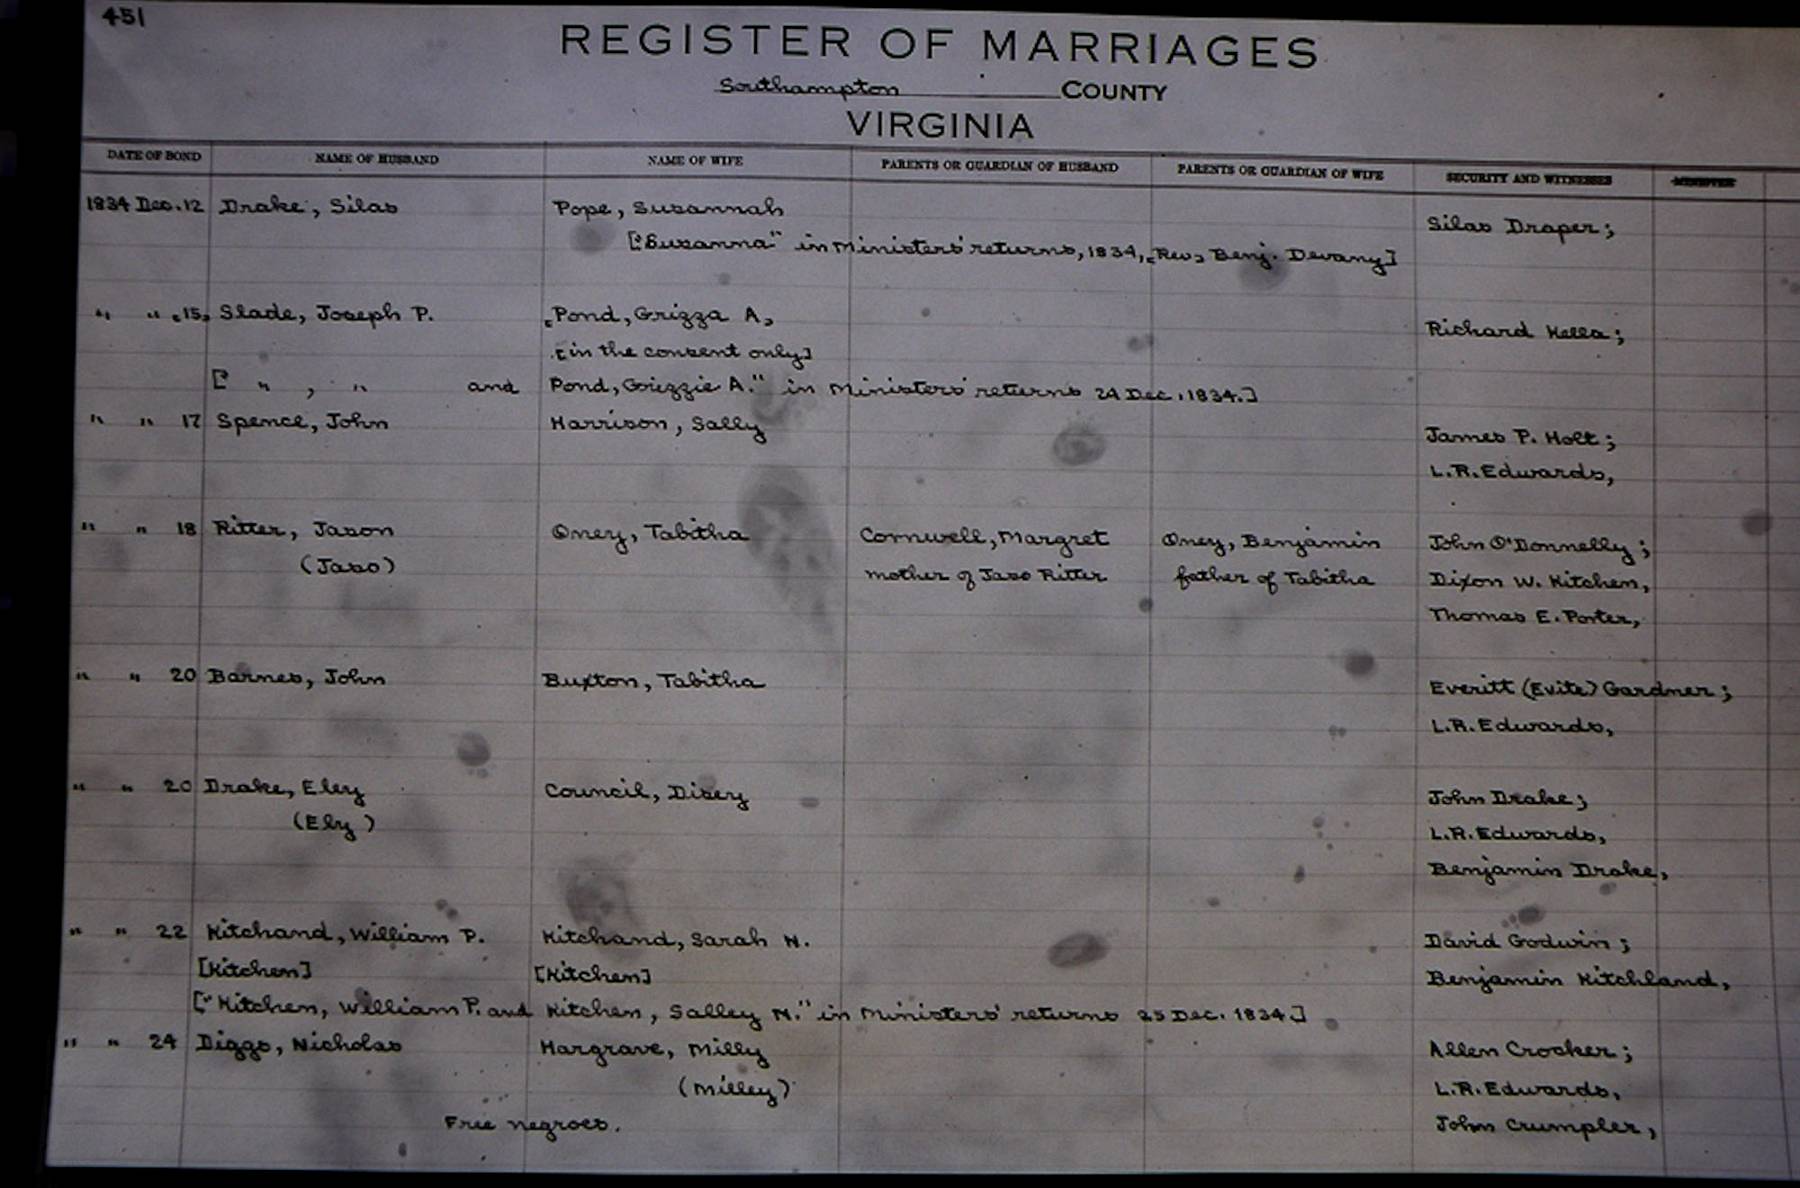 451
REGISTER OF MARRIAGES
Southampton COUNTY
VIRGINIA
DATE OF BOND NAME OF HUSBAND NAME OF WIFE PARENTS OR GUARDIAN OF HUSBAND PARENTS OR GUARDIAN OF WIFE SECURITY AND WITNESSES MINISTER
1834 Dec. 12 Drake, Silas Pope, Susannah Silas Draper;
["Susanna" in Ministers' returns, 1834, [Rev] Benj. Devany]
" " [15] Slade, Joseph P. [Pond, Grizza A] Richard Kella;
[in the consent only]
[" " , " and Pond, Griezzie A." in Ministers' returns 24 Dec. 1834.]
" " 17 Spence, John Harrison, Sally James P. Holt;
L.R. Edwards,
" " 18 Ritter, Jason Oney, Tabitha Cornwell, Margret Oney, Benjamin John O'Donnelly;
(Jaso) mother of Jaso Ritter father of Tabitha Dixon W. Kitchen,
Thomas E. Porter,
" " 20 Barnes, John Buxton, Tabitha Everitt (Evite) Gardner;
L.R. Edwards,
" " 20 Drake, Eley Council, Disey John Drake;
(Ely) L.R. Edwards,
Benjamin Drake,
" " 22 Kitchand, William P. Kitchand, Sarah N. David Godwin;
[Kitchen] [Kitchen] Benjamin Kitchland,
["Kitchen, William P. and Kitchen, Salley N." in Ministers' returns 25 Dec. 1834]
" " 24 Diggs, Nicholas Hargrave, Milly Allen Crocker;
(Milley) L.R. Edwards,
Free negroes. John Crumpler,